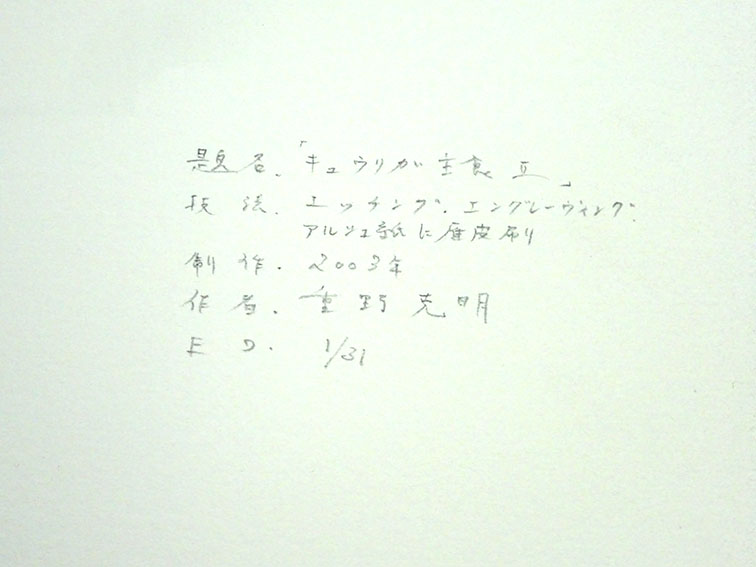 題名.「キュウリが主食 II」
技法. エッチング. エングレーヴィング.
アルシュ紙に雁皮刷り
制作. 2003年
作者. 重野克明
E D. 1/31